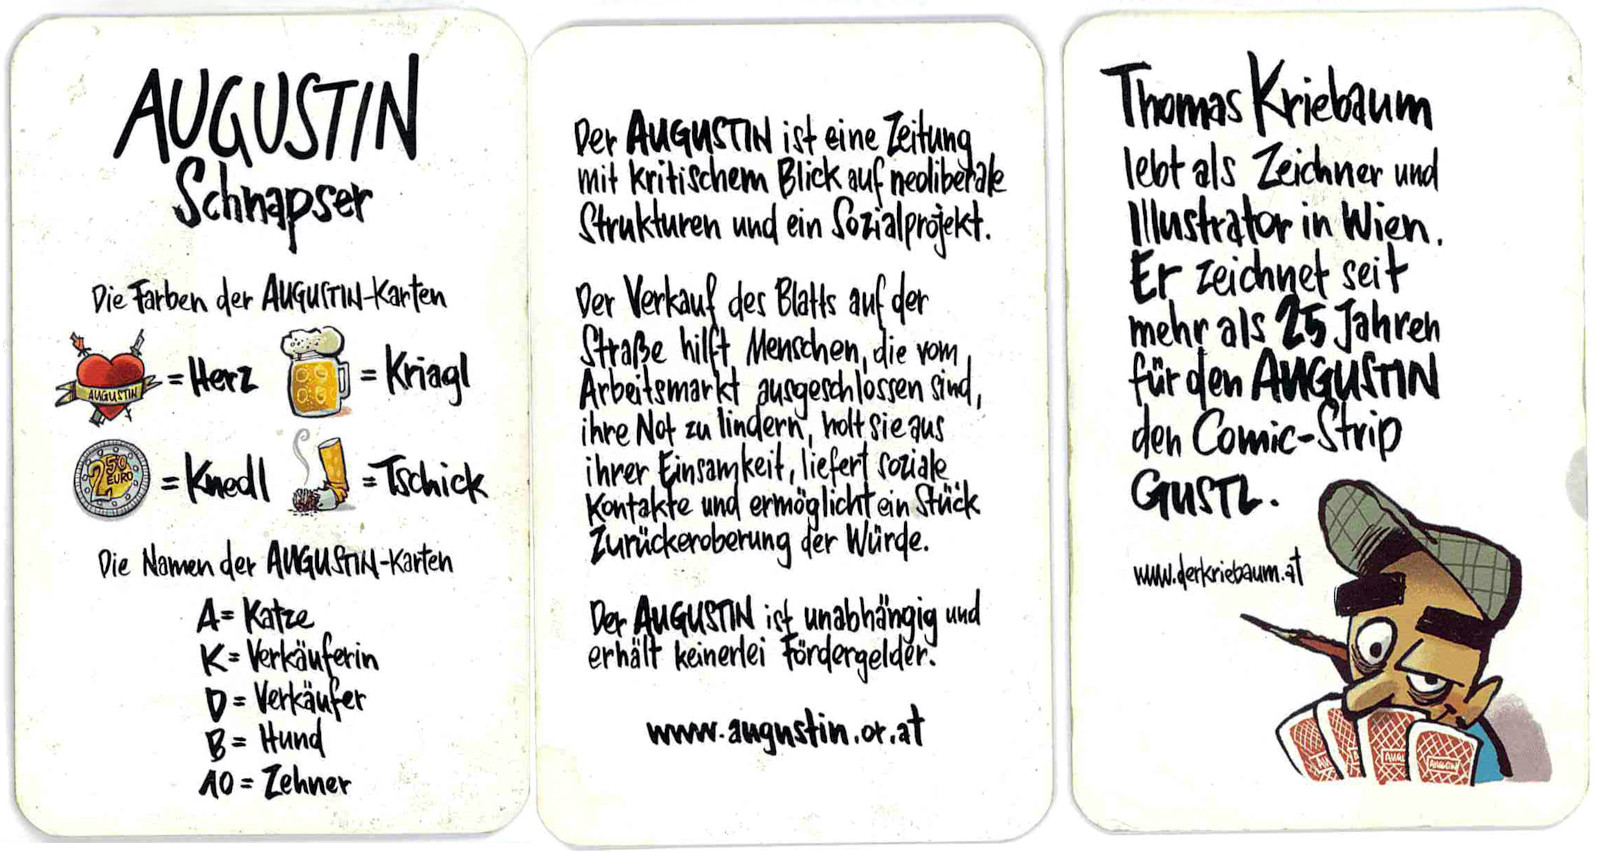 AUGUSTIN
Schnapser
Die Farben der AUGUSTIN-Karten
AUGUSTIN
= Herz
= Kriagl
2 50 EURO
= Knedl
= Tschick
Die Namen der AUGUSTIN-Karten
A = Katze
K = Verkäuferin
D = Verkäufer
B = Hund
10 = Zehner
Der AUGUSTIN ist eine Zeitung
mit kritischem Blick auf neoliberale
Strukturen und ein Sozialprojekt.
Der Verkauf des Blatts auf der
Straße hilft Menschen, die vom
Arbeitsmarkt ausgeschlossen sind,
ihre Not zu lindern, holt sie aus
ihrer Einsamkeit, liefert soziale
Kontakte und ermöglicht ein Stück
Zurückeroberung der Würde.
Der AUGUSTIN ist unabhängig und
erhält keinerlei Fördergelder.
www.augustin.or.at
Thomas Kriebaum
lebt als Zeichner und
Illustrator in Wien.
Er zeichnet seit
mehr als 25 Jahren
für den AUGUSTIN
den Comic-Strip
GUSTL.
www.derkriebaum.at